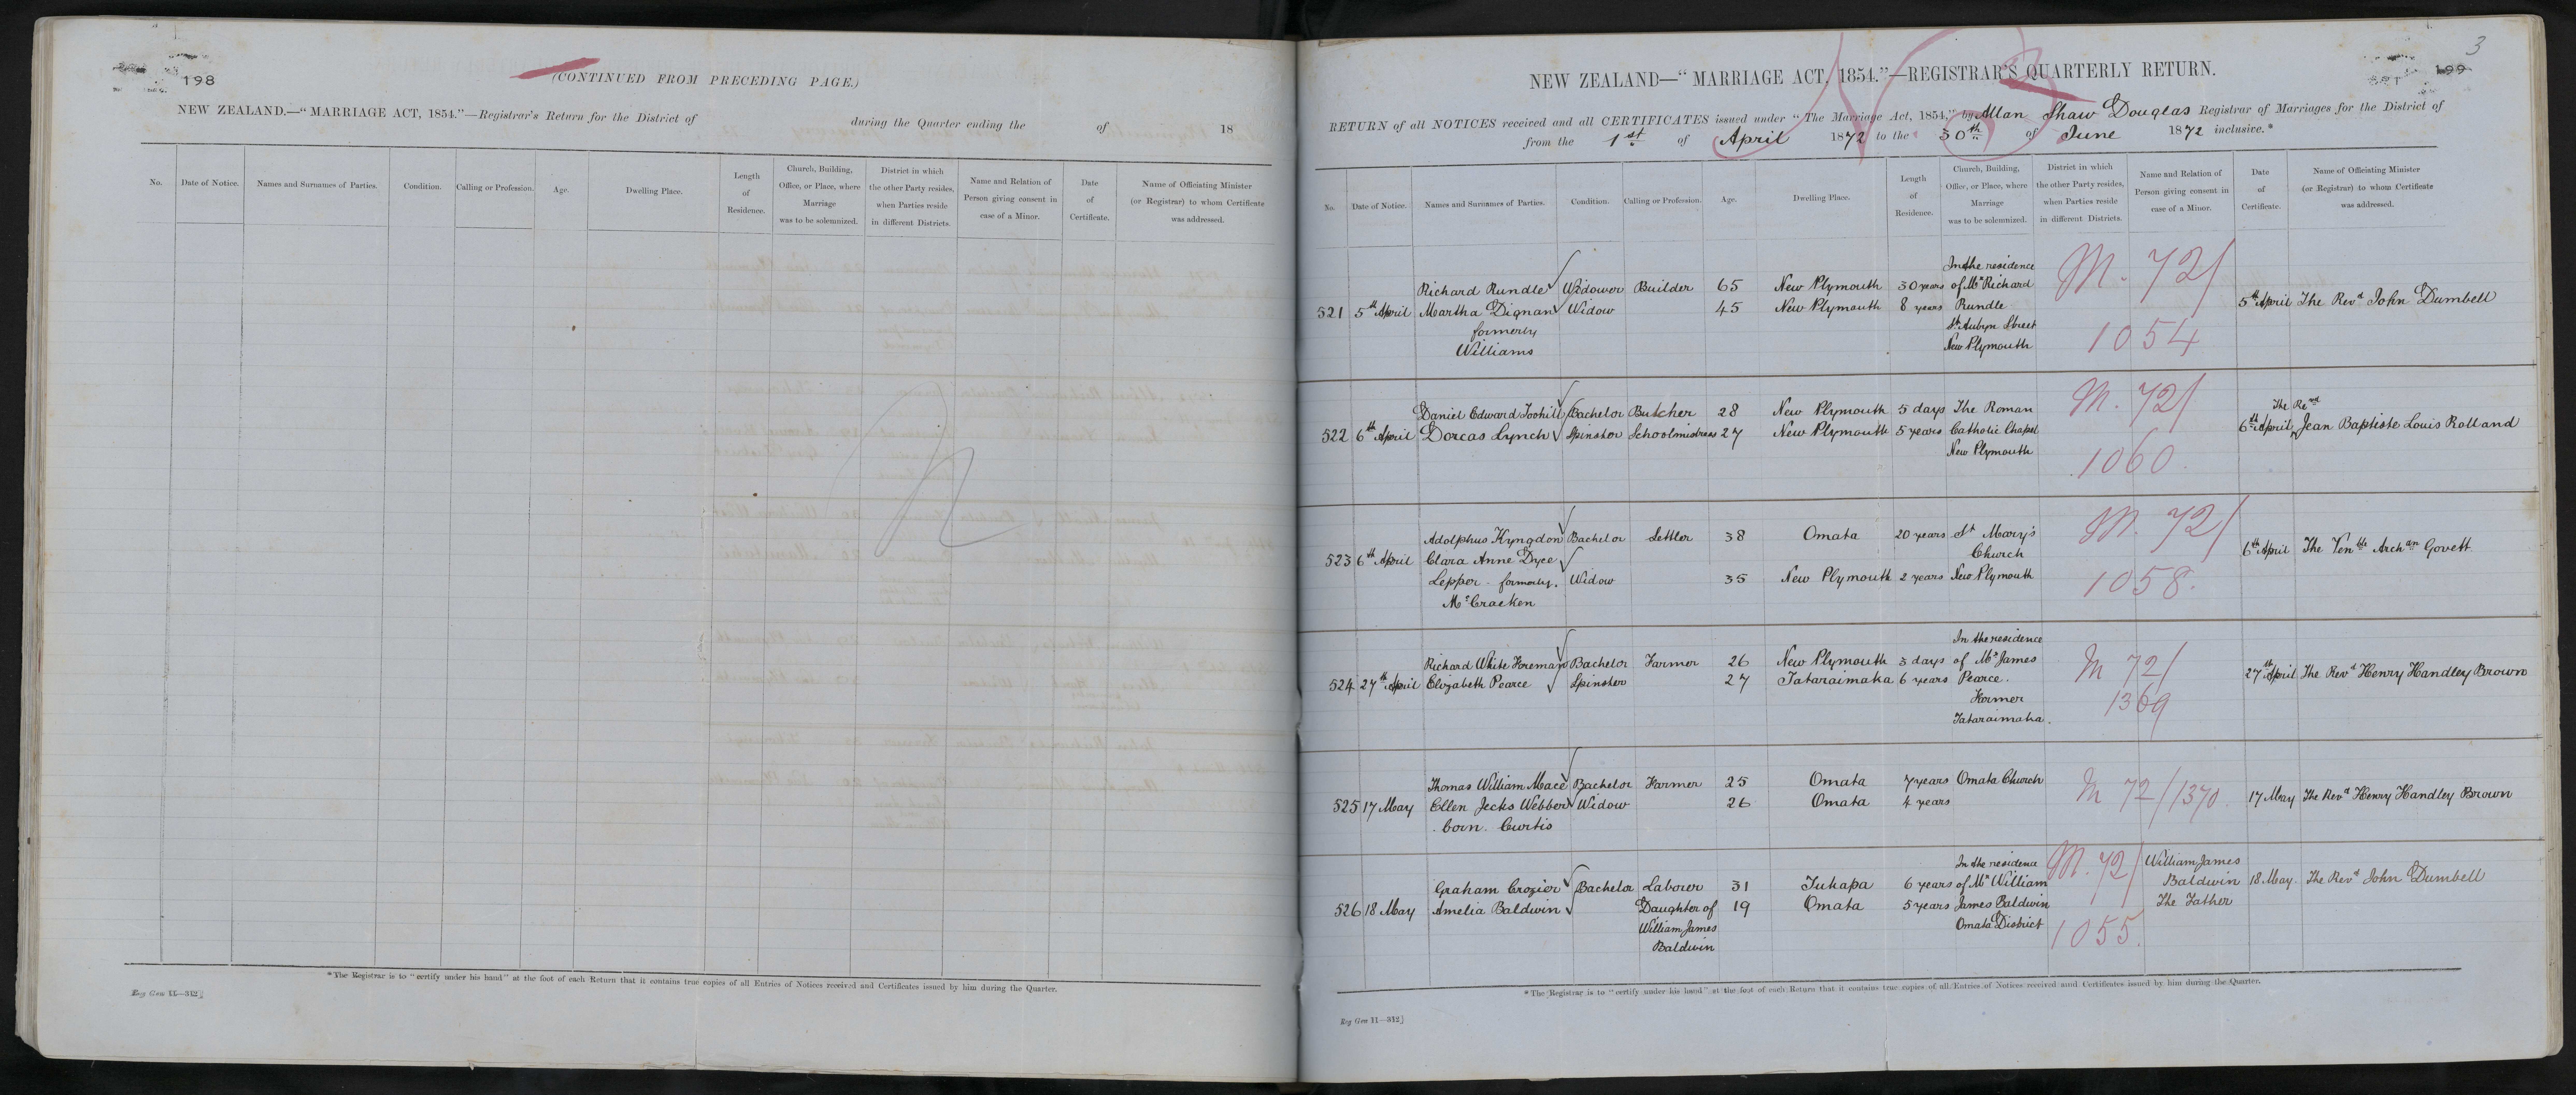 198
(CONTINUED FROM PRECEDING PAGE.)
NEW ZEALAND.—"MARRIAGE ACT, 1854."—Registrar's Return for the District of during the Quarter ending the of 18
No. Date of Notice. Names and Surnames of Parties. Condition. Calling or Profession. Age. Dwelling Place. Length of Residence. Church, Building, Office, or Place, where Marriage was to be solemnized. District in which the other Party resides, when Parties reside in different Districts. Name and Relation of Person giving consent in case of a Minor. Date of Certificate. Name of Officiating Minister (or Registrar) to whom Certificate was addressed.
*The Registrar is to "certify under his hand" at the foot of each Return that it contains true copies of all Entries of Notices received and Certificates issued by him during the Quarter.
Reg Gen 11—312]
3
199
NEW ZEALAND—"MARRIAGE ACT, 1854."—REGISTRAR'S QUARTERLY RETURN.
RETURN of all NOTICES received and all CERTIFICATES issued under "The Marriage Act, 1854," by Allan Shaw Douglas Registrar of Marriages for the District of
from the 1st of April 1872 to the 30th of June 1872 inclusive.*
No. Date of Notice. Names and Surnames of Parties. Condition. Calling or Profession. Age. Dwelling Place. Length of Residence. Church, Building, Office, or Place, where Marriage was to be solemnized. District in which the other Party resides, when Parties reside in different Districts. Name and Relation of Person giving consent in case of a Minor. Date of Certificate. Name of Officiating Minister (or Registrar) to whom Certificate was addressed.
In the residence M. 72/
Richard Rundle Widower Builder 65 New Plymouth 30 years of Mr Richard
521 5th April Martha Dignan Widow 45 New Plymouth 8 years Rundle 5th April The Revd John Dumbell
formerly St Aubyn Street 1054
Williams New Plymouth
Daniel Edward Toohill Bachelor Butcher 28 New Plymouth 5 days The Roman M. 72/ The Revd
522 6th April Dorcas Lynch Spinster Schoolmistress 27 New Plymouth 5 years Catholic Chapel 6th April Jean Baptiste Louis Rolland
New Plymouth 1060.
Adolphus Kyngdon Bachelor Settler 38 Omata 20 years St Mary's M. 72/
523 6th April Clara Anne Dyce Church 6th April The Venble Archan Govett
Lepper - formerly. Widow 35 New Plymouth 2 years New Plymouth 1058.
McCracken
In the residence
Richard White Foreman Bachelor Farmer 26 New Plymouth 3 days of Mr James M 72/
524 27th April Elizabeth Pearce Spinster 27 Tataraimaka 6 years Pearce. 27th April The Revd Henry Handley Brown
Farmer 1369
Tataraimaka.
Thomas William Mace Bachelor Farmer 25 Omata 7 years Omata Church M 72/1370.
525 17 May Ellen Jecks Webber Widow 26 Omata 4 years 17 May The Revd Henry Handley Brown
born. Curtis
In the residence M. 72/ William James
Graham Crozier Bachelor Laborer 31 Tukapa 6 years of Mr William Baldwin 18 May. The Revd John Dumbell
526 18 May Amelia Baldwin Daughter of 19 Omata 5 years James Baldwin The Father
William James Omata District 1055.
Baldwin
*The Registrar is to "certify under his hand" at the foot of each Return that it contains true copies of all Entries of Notices received and Certificates issued by him during the Quarter.
Reg Gen 11—312]